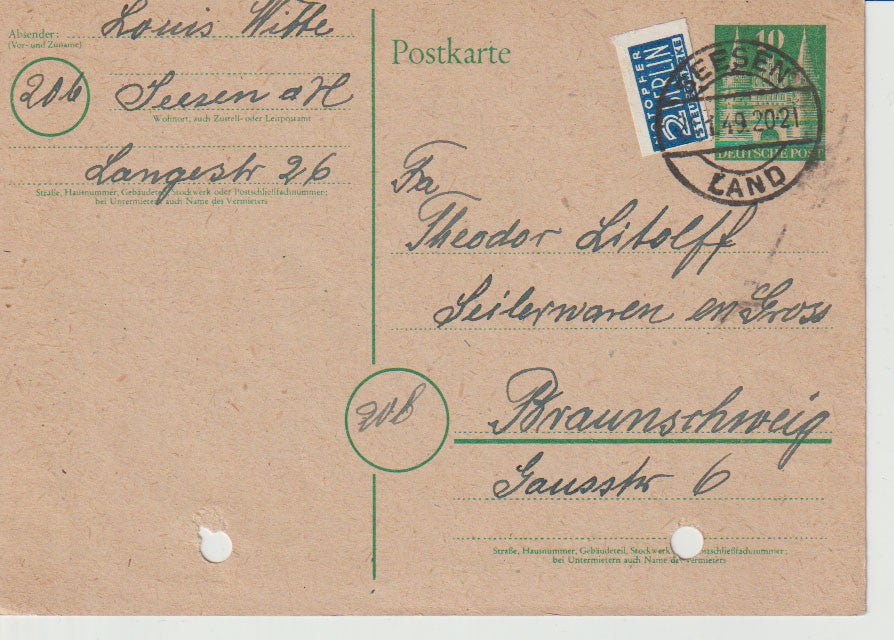 Absender: Louis Witte
(Vor- und Zuname)
20b Seesen a H
Wohnort, auch Zustell- oder Leitpostamt
Langestr 26
Straße, Hausnummer, Gebäudeteil, Stockwerk oder Postschließfachnummer;
bei Untermietern auch Name des Vermieters
Postkarte
NOTOPFER
2 BERLIN
STEUERMARKE
10
DEUTSCHE POST
SEESEN
49.20-21
LAND
Fa
Theodor Litolff
Seilerwaren en Gross
20b
Braunschweig
Gausstr 6
Straße, Hausnummer, Gebäudeteil, Stockwerk Postschließfachnummer;
bei Untermietern auch Name des Vermieters